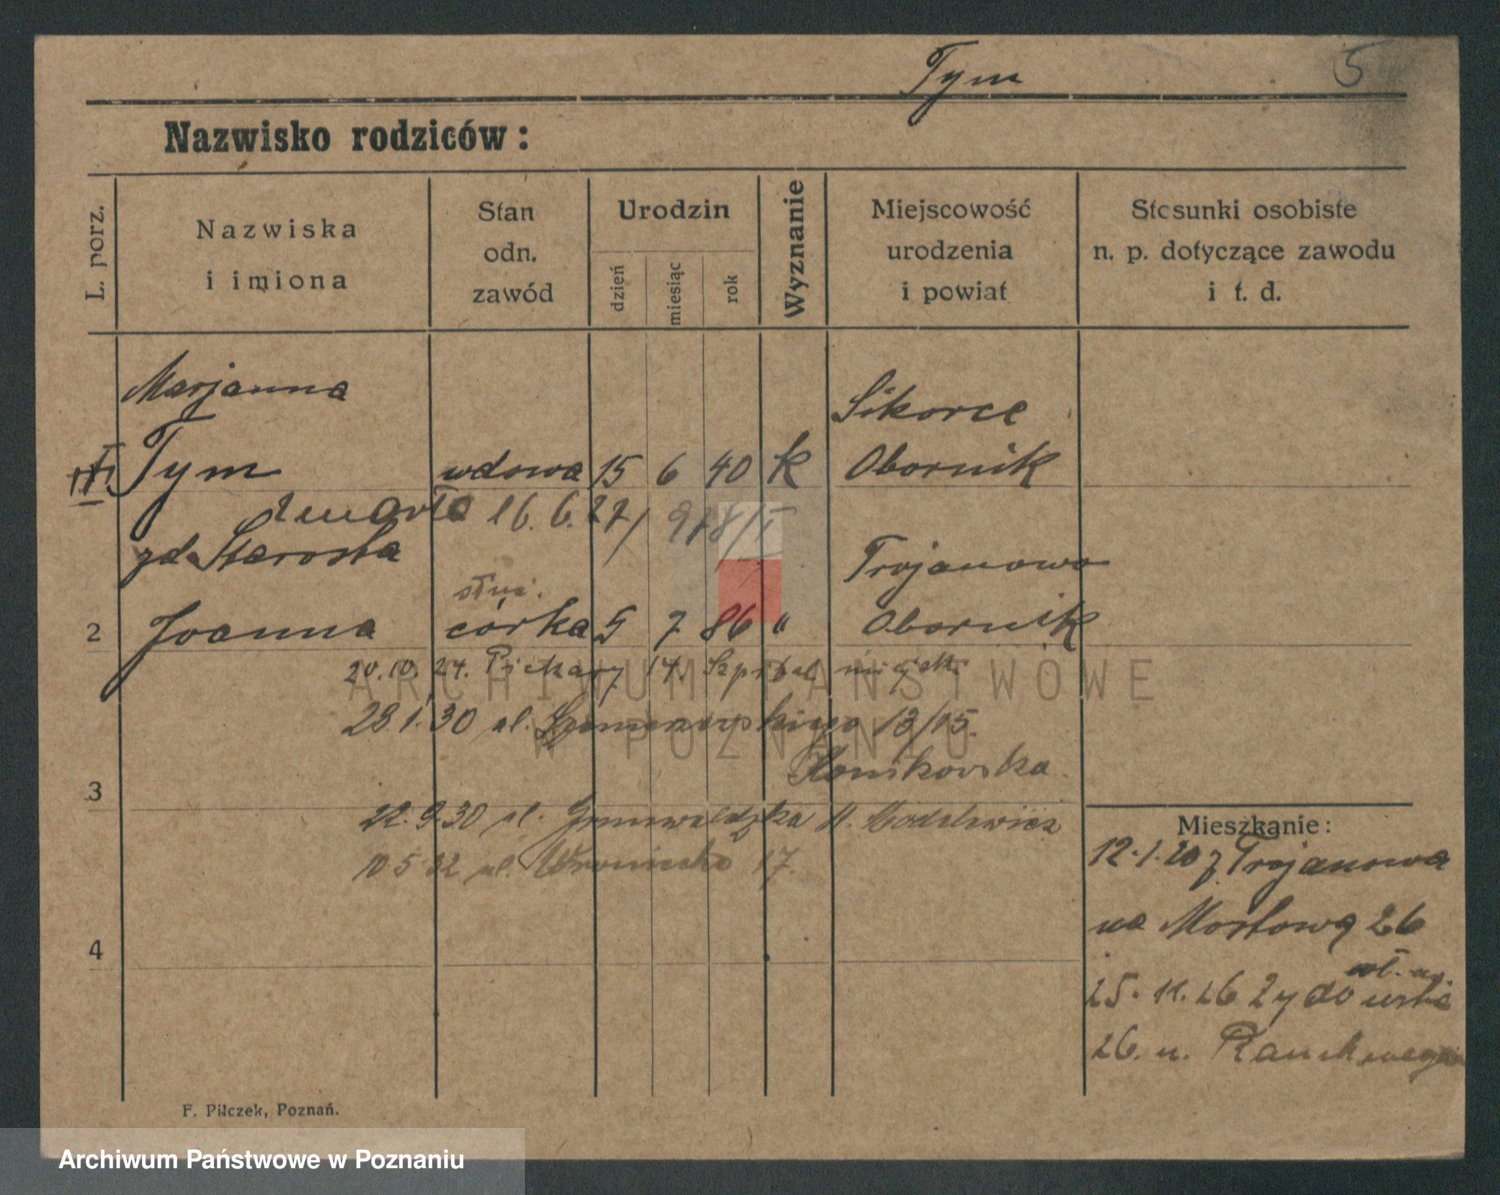 Tym
5
Nazwisko rodziców:
L. porz.
Nazwiska
i imiona
Stan
odn.
zawód
Urodzin
dzień
miesiąc
rok
Wyznanie
Miejscowość
urodzenia
i powiat
Stosunki osobiste
n. p. dotyczące zawodu
i t. d.
Marjanna
Sikorce
Tym wdowa 15 6 40 k Obornik
zmarła 16. 6. 27/ 918/I
zd. Starosta Trojanowo
służ.
2 Joanna córka 5 7 86 " Obornik
20.10.27. Piekary 17. Szpital miejsk.
28.1.30 ul. 13/15.
3
22.9.30 ul. Grunwaldzka
10.5.32 ul. Wroniecka 17.
Mieszkanie:
12.1.20 z Trojanowa
na Mostową 26
25.11.26 Żydowska
26. u.
4
F. Pilczek, Poznań.
ARCHIWUM PAŃSTWOWE
W POZNANIU
Archiwum Państwowe w Poznaniu